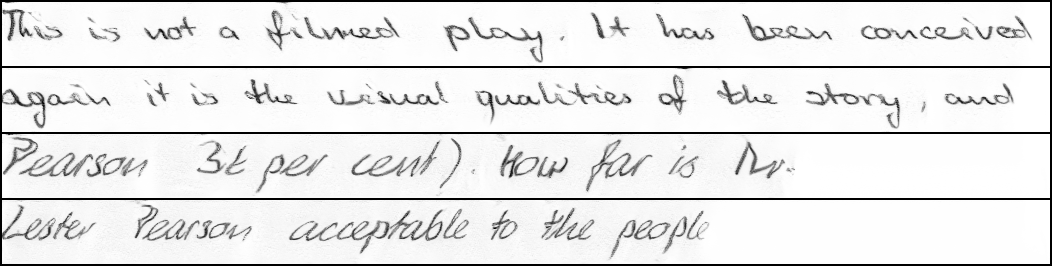 This is not a filmed play. It has been conceived
again it is the visual qualities of the story, and
Pearson per cent). How far is Mr.
Lester Pearson acceptable to the people